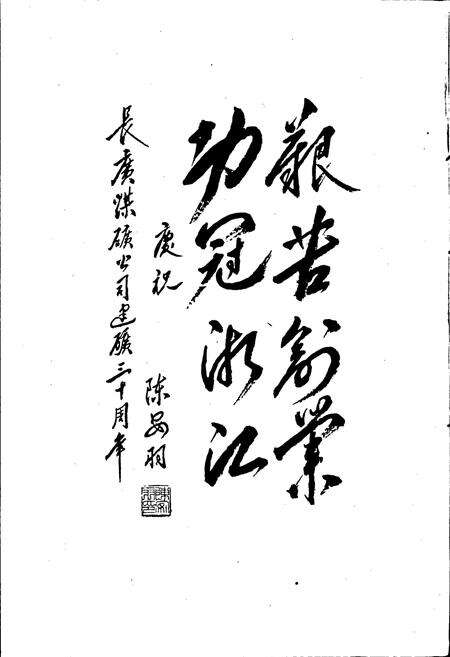 艱苦創業
功冠浙江
慶祝
長廣煤礦公司建礦三十周年
陈安羽